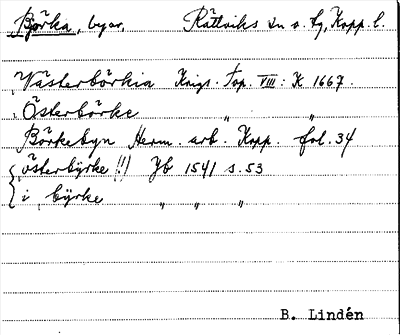 Börka, byar, Rättviks sn o. tg, Kopp. l.
Västerbörkia Krigs. Top. VIII: K 1667.
Österbörke " "
Börkebyn Herm. arb. Kopp. fol. 34
österbyrke (!) Jb 1541 s. 53
i byrke " " "
B. Lindén